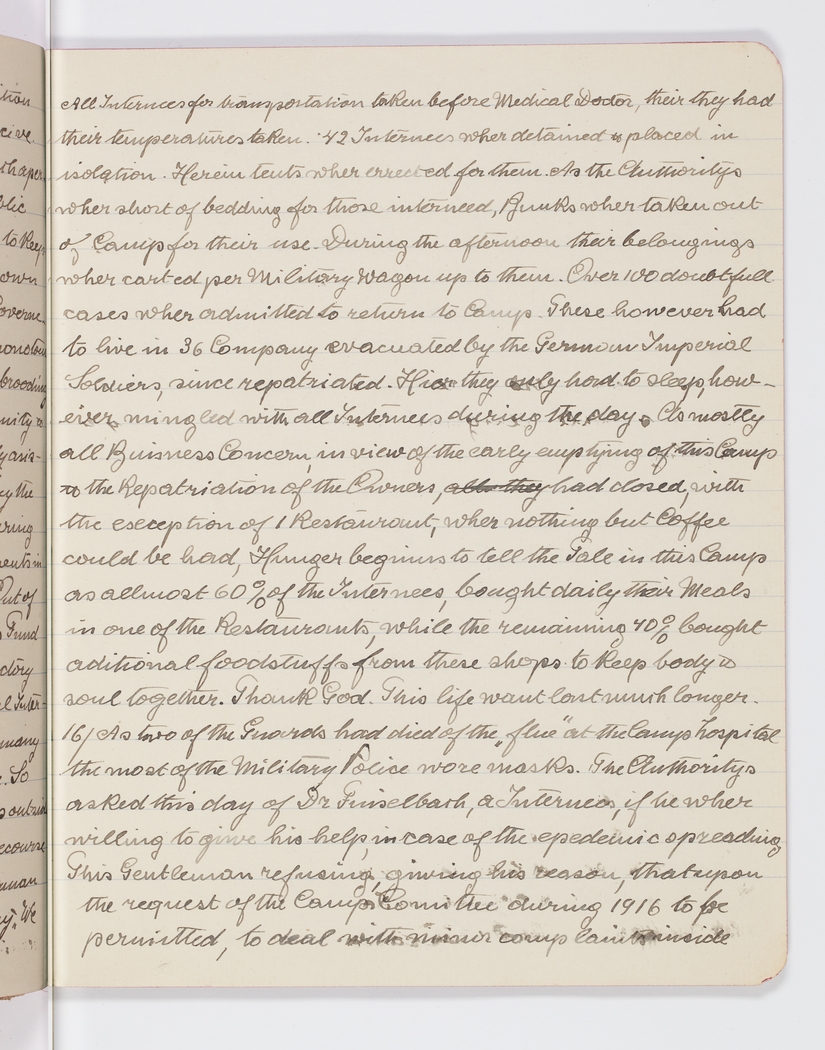 All Internees for transportation taken before Medical Doctor, their they had
their temperatures taken. 42 Internees wher detained & placed in
isolation. Herein tents wher errected for them. As the Authoritys
wher short of bedding for those interneed, Bunks wher taken out
of Camp for their use. During the afternoon their belongings
wher carted per Military Wagon up to them. Over 100 doubtfull
cases wher admitted to return to Camp. These however had
to live in 36 Company evacuated by the German Imperial
Soldiers, since repatriated. Hier they only had to sleep, how-
eiver mingled with all Internees during the day. As mostly
all Buisness Concern, in view of the early emptying of this Camp
& the Repatriation of the Owners, all they had closed, with
the esception of 1 Restaurant, wher nothing but Coffee
could be had, Hunger beginns to tell the Tale in this Camp
as allmost 60% of the Internees, bought daily their Meals
in one of the Restaurants, while the remaining 40% bought
aditional foodstuffs from these shops to keep body &
soul together. Thank God. This life want last much longer.
16/ As two of the Guards had died of the „flue" at the Camps hospital
the most of the Military Police wore masks. The Authoritys
asked this day of Dr a Internee, if he wher
willing to give his help, in case of the epedemic spreading
This Gentleman refusing, giving his reason, that upon
the request of the Camps Comittee during 1916 to be
permitted, to deal with minor complaints inside
tion
ceive.
shaper
blic
to keep
own
Governe-
monotous
brooding
nity &
by the
ering
ments in
Out of
Fund
l Inter-
many
. So
outside
recourse
. We